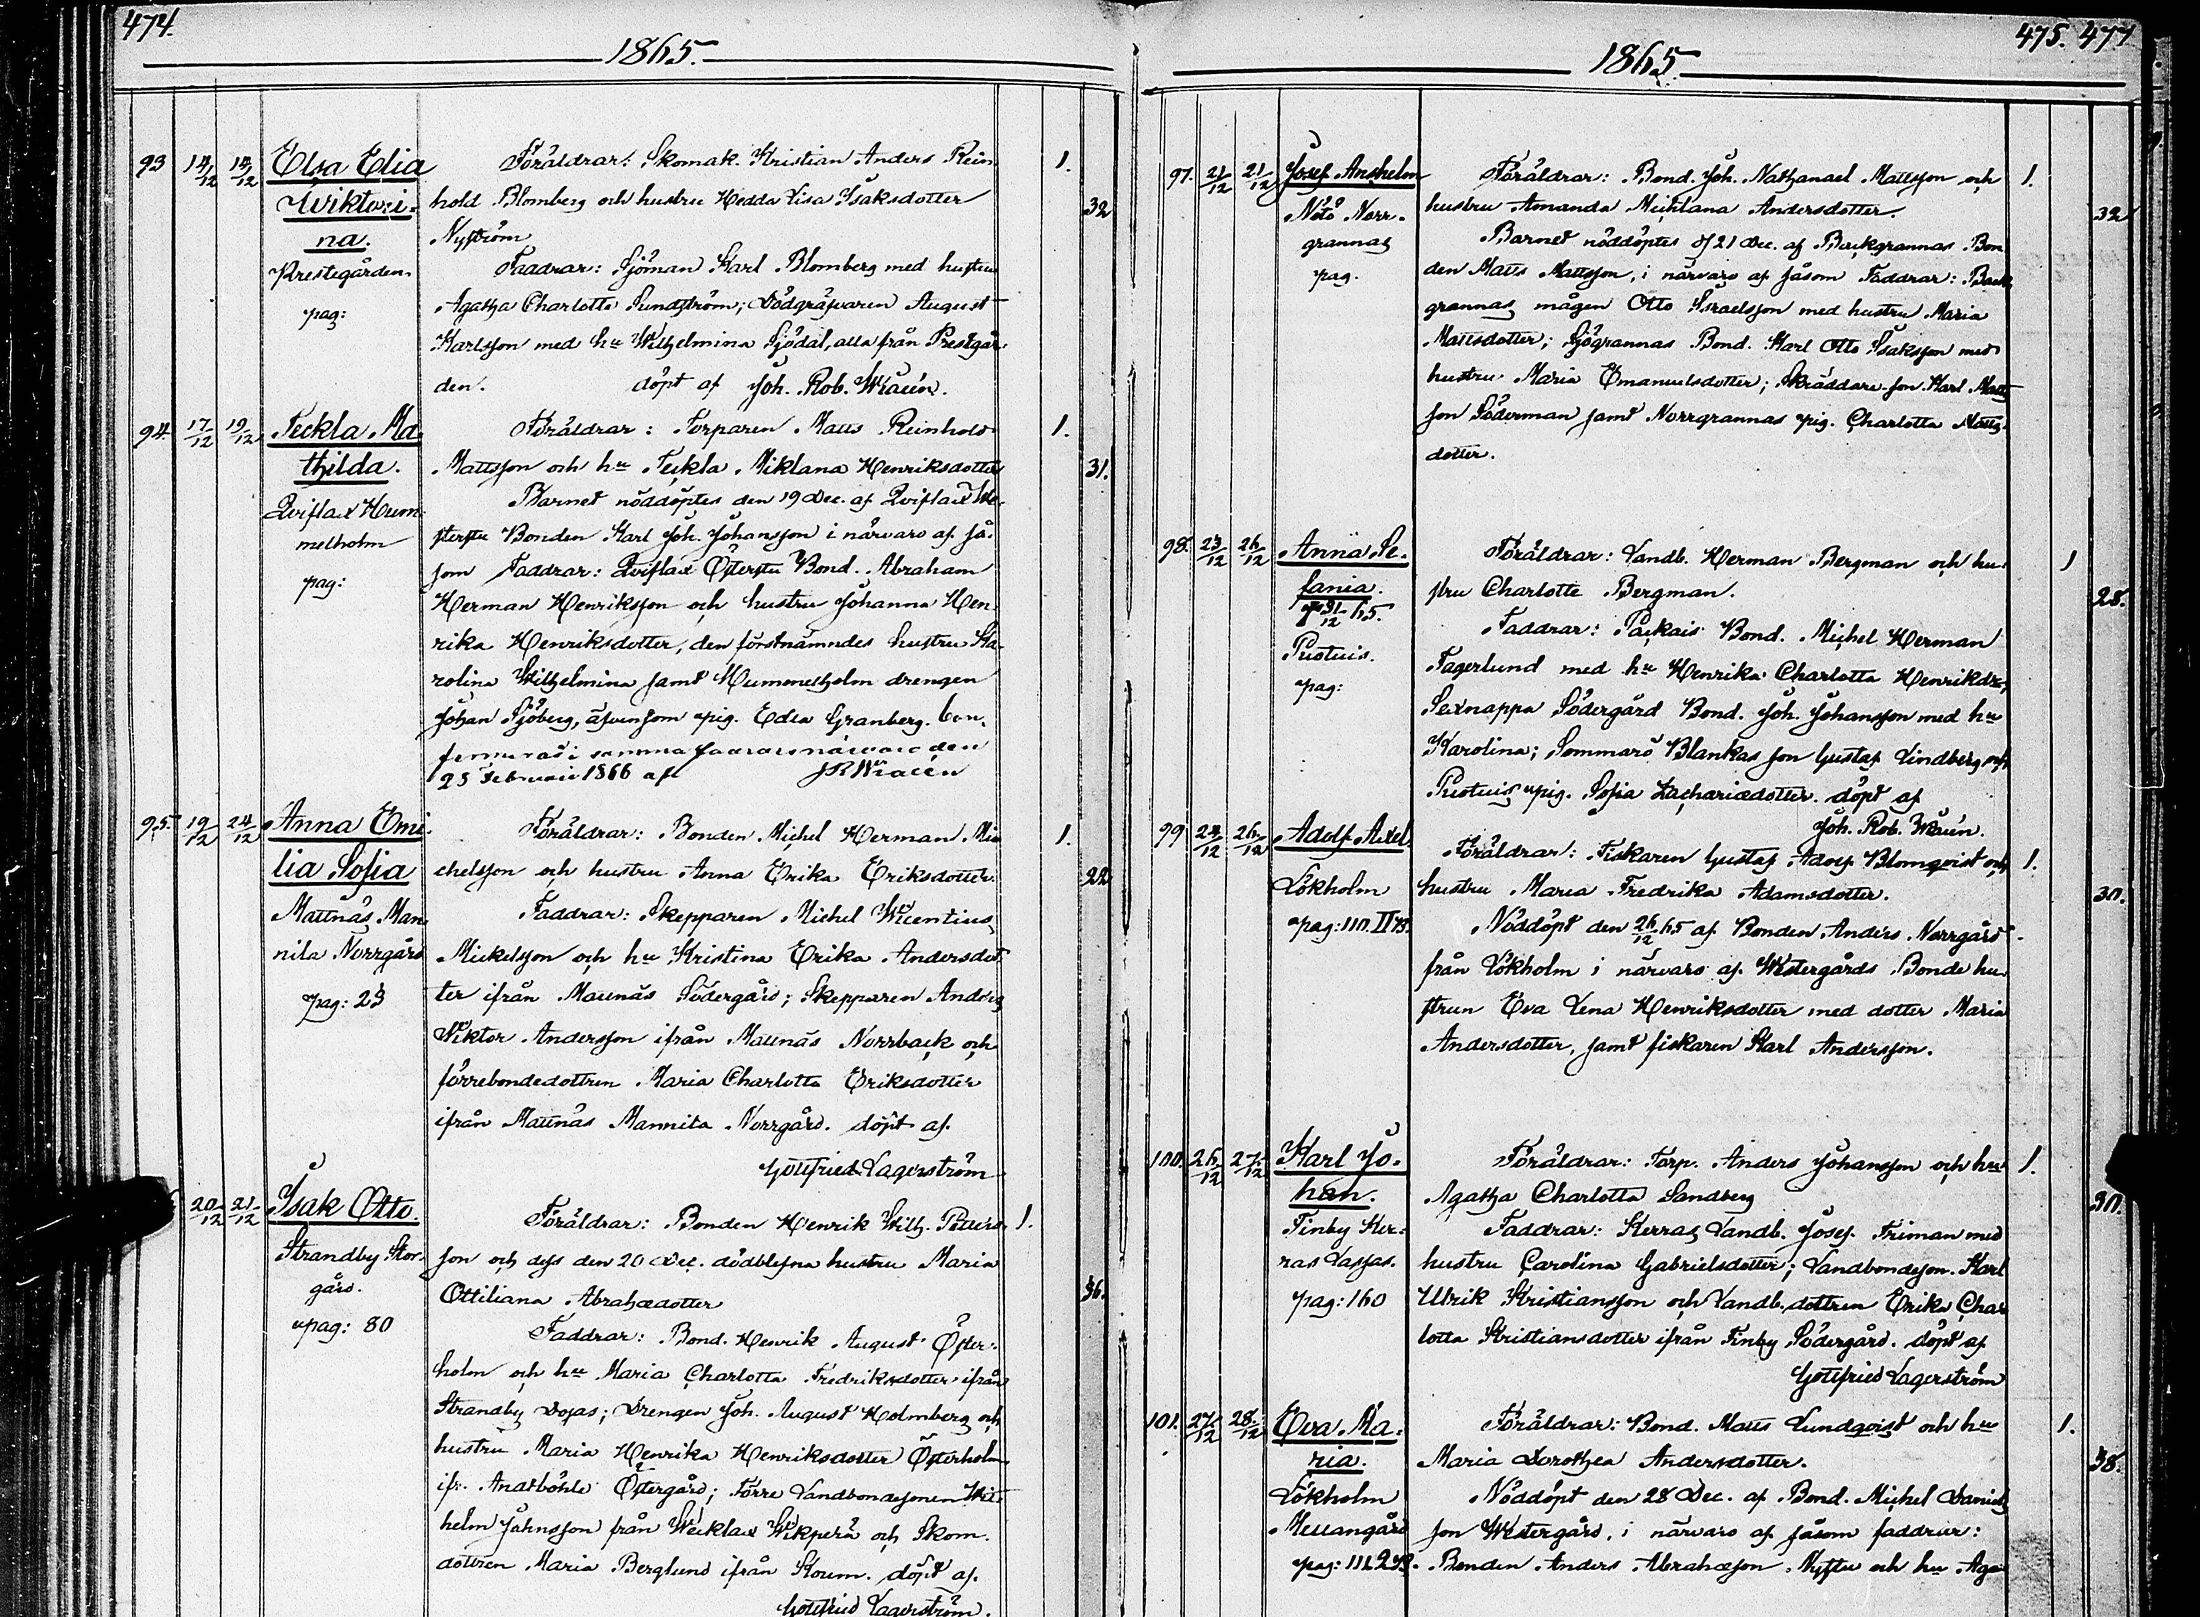 474.
1865.
93 14/12 14/12 Elsa Elia Föräldrar: Skomak. Kristian Anders Rein 1.
Wiktori- hold Blomberg och hustru Hedda Lisa Isaksdotter 32
na. Nyström
Prestegården Faddrar: Sjöman Karl Blomberg med hustru
pag: Agatha Charlotta Sundström; Dödgräfvaren August
Karlsson med hu Wilhelmina Sjödal, alla från Prestgår
den. döpt af Joh. Rob. Wraén.
94. 17/12 19/12 Teckla Ma Föräldrar: Torparen Matts Reinhold 1.
thilda. Mattsson och hu Teckla Miklana Henriksdotter 31.
Qviflax Hum Barnet nöddöptes den 19 Dec. af Qviflax We-
melholm sterstu Bonden Karl Joh. Johansson i närvaro af så-
pag: som Faddrar: Qviflax Österstu Bond. Abraham
Herman Henriksson och hustru Johanna Hen-
rika Henriksdotter, den förstnämndes hustru Ka-
rolina Wilhelmina samt Hummelholm drengen
Johan Sjöberg, äfvensom pig. Edla Granberg. Con-
firmerad i samma faddrars närvaro den
25 Februari 1866 af JRWraén
95. 19/12 24/12 Anna Emi Föräldrar: Bonden Michel Herman Mi 1.
lia Sofia chelsson och hustru Anna Erika Eriksdotter. 22
Mattnäs Man Faddrar: Skepparen Michel Wicentius
nila Norrgård Mickelsson och hu Kristina Erika Andersdot
pag: 23 ter ifrån Mattnäs Södergård; Skepparen Anders
Wiktor Andersson ifrån Mattnäs Norrback och
förrebondedottren Maria Charlotta Eriksdotter
ifrån Mattnäs Mannila Norrgård. döpt af
Gottfried Lagerström
20/12 21/12 Isak Otto. Föräldrar: Bonden Henrik Wilh. Petters 1.
Strandby Stor- son och dess den 20 Dec. dödblefna hustru Maria
gård. Ottiliana Abrahædotter 36.
pag: 80 Faddrar: Bond. Henrik August Öster-
holm och hu Maria Charlotta Fredriksdotter ifrån
Strandby Dojas; Drengen Joh. August Holmberg och
hustru Maria Henrika Henriksdotter Österholm
ifr. Andtböhle Östergård; Förre Landbondesonen Wil
helm Johnsson från Wecklax Wikperä och Skom.
dottren Maria Berglund ifrån Koum. döpt af.
Gottfried Lagerström.
475. 477
1865
97. 21/12 21/12 Josef Anshelm Föräldrar: Bond. Joh. Nathanael Mattsson och 1.
Nötö Norr- hustru Amanda Michlana Andersdotter. 32
grannas Barnet nöddöptes d/ 21 Dec. af Backgrannas Bon
pag. den Matts Mattsson, i närvaro af såsom Faddrar: Back
grannas mågen Otto Israelsson med hustru Maria
Mattsdotter; Sjögrannas Bond. Karl Otto Isaksson med
hustru Maria Emanuelsdotter; Skräddare son Karl Matts
son Söderman samt Norrgrannas pig. Charlotta Matts-
dotter.
98. 23/12 26/12 Anna Se- Föräldrar: Landb. Herman Bergman och hu- 1
fania. stru Charlotte Bergman. 28.
† 31/12 65. Faddrar: Packais Bond. Michel Herman
Prostvis. Fagerlund med hu Henrika Charlotta Henriksdr,
pag: Sexnappa Södergård Bond. Joh. Johansson med hu
Karolina; Sommarö Blankas son Gustaf Lindberg och
Prostvis pig. Sofia Zachariædotter. döpt af
Joh. Rob. Wraén.
99 24/12 26/12 Adolf Axel. Föräldrar: Fiskaren Gustaf Adolf Blomqvist och 1.
Lökholm hustru Maria Fredrika Adamsdotter. 30.
pag: 110. II 43. Nöddöpt den 26/12 65 af Bonden Anders Norrgård
från Lökholm i närvaro af Westergårds Bonde hu-
strun Eva Lena Henriksdotter med dotter Maria
Andersdotter, samt fiskaren Karl Andersson.
100. 26/12 27/12 Karl Jo- Föräldrar: Torp. Anders Johansson och hu 1.
han. Agatha Charlotta Sandberg 30.
Finby Ker- Faddrar: Kerras Landb. Josef Friman med
ras Lassas. hustru Carolina Gabrielsdotter; Landbondeson. Karl
pag: 160 Ulrik Kristiansson och Landb. dottren Erika Char
lotta Kristiansdotter ifrån Finby Södergård. döpt af
Gottfried Lagerström
101. 27/12 28/12 Eva Ma- Föräldrar: Bond. Matts Lundqvist och hu 1.
ria. Maria Dorothea Andersdotter. 38.
Lökholm Nöddöpt den 28 Dec. af Bond. Michel Daniels
Mellangård son Westergård, i närvaro af såsom faddrar:
pag: 111. Bonden Anders Abrahæson Nystu och hu Aga